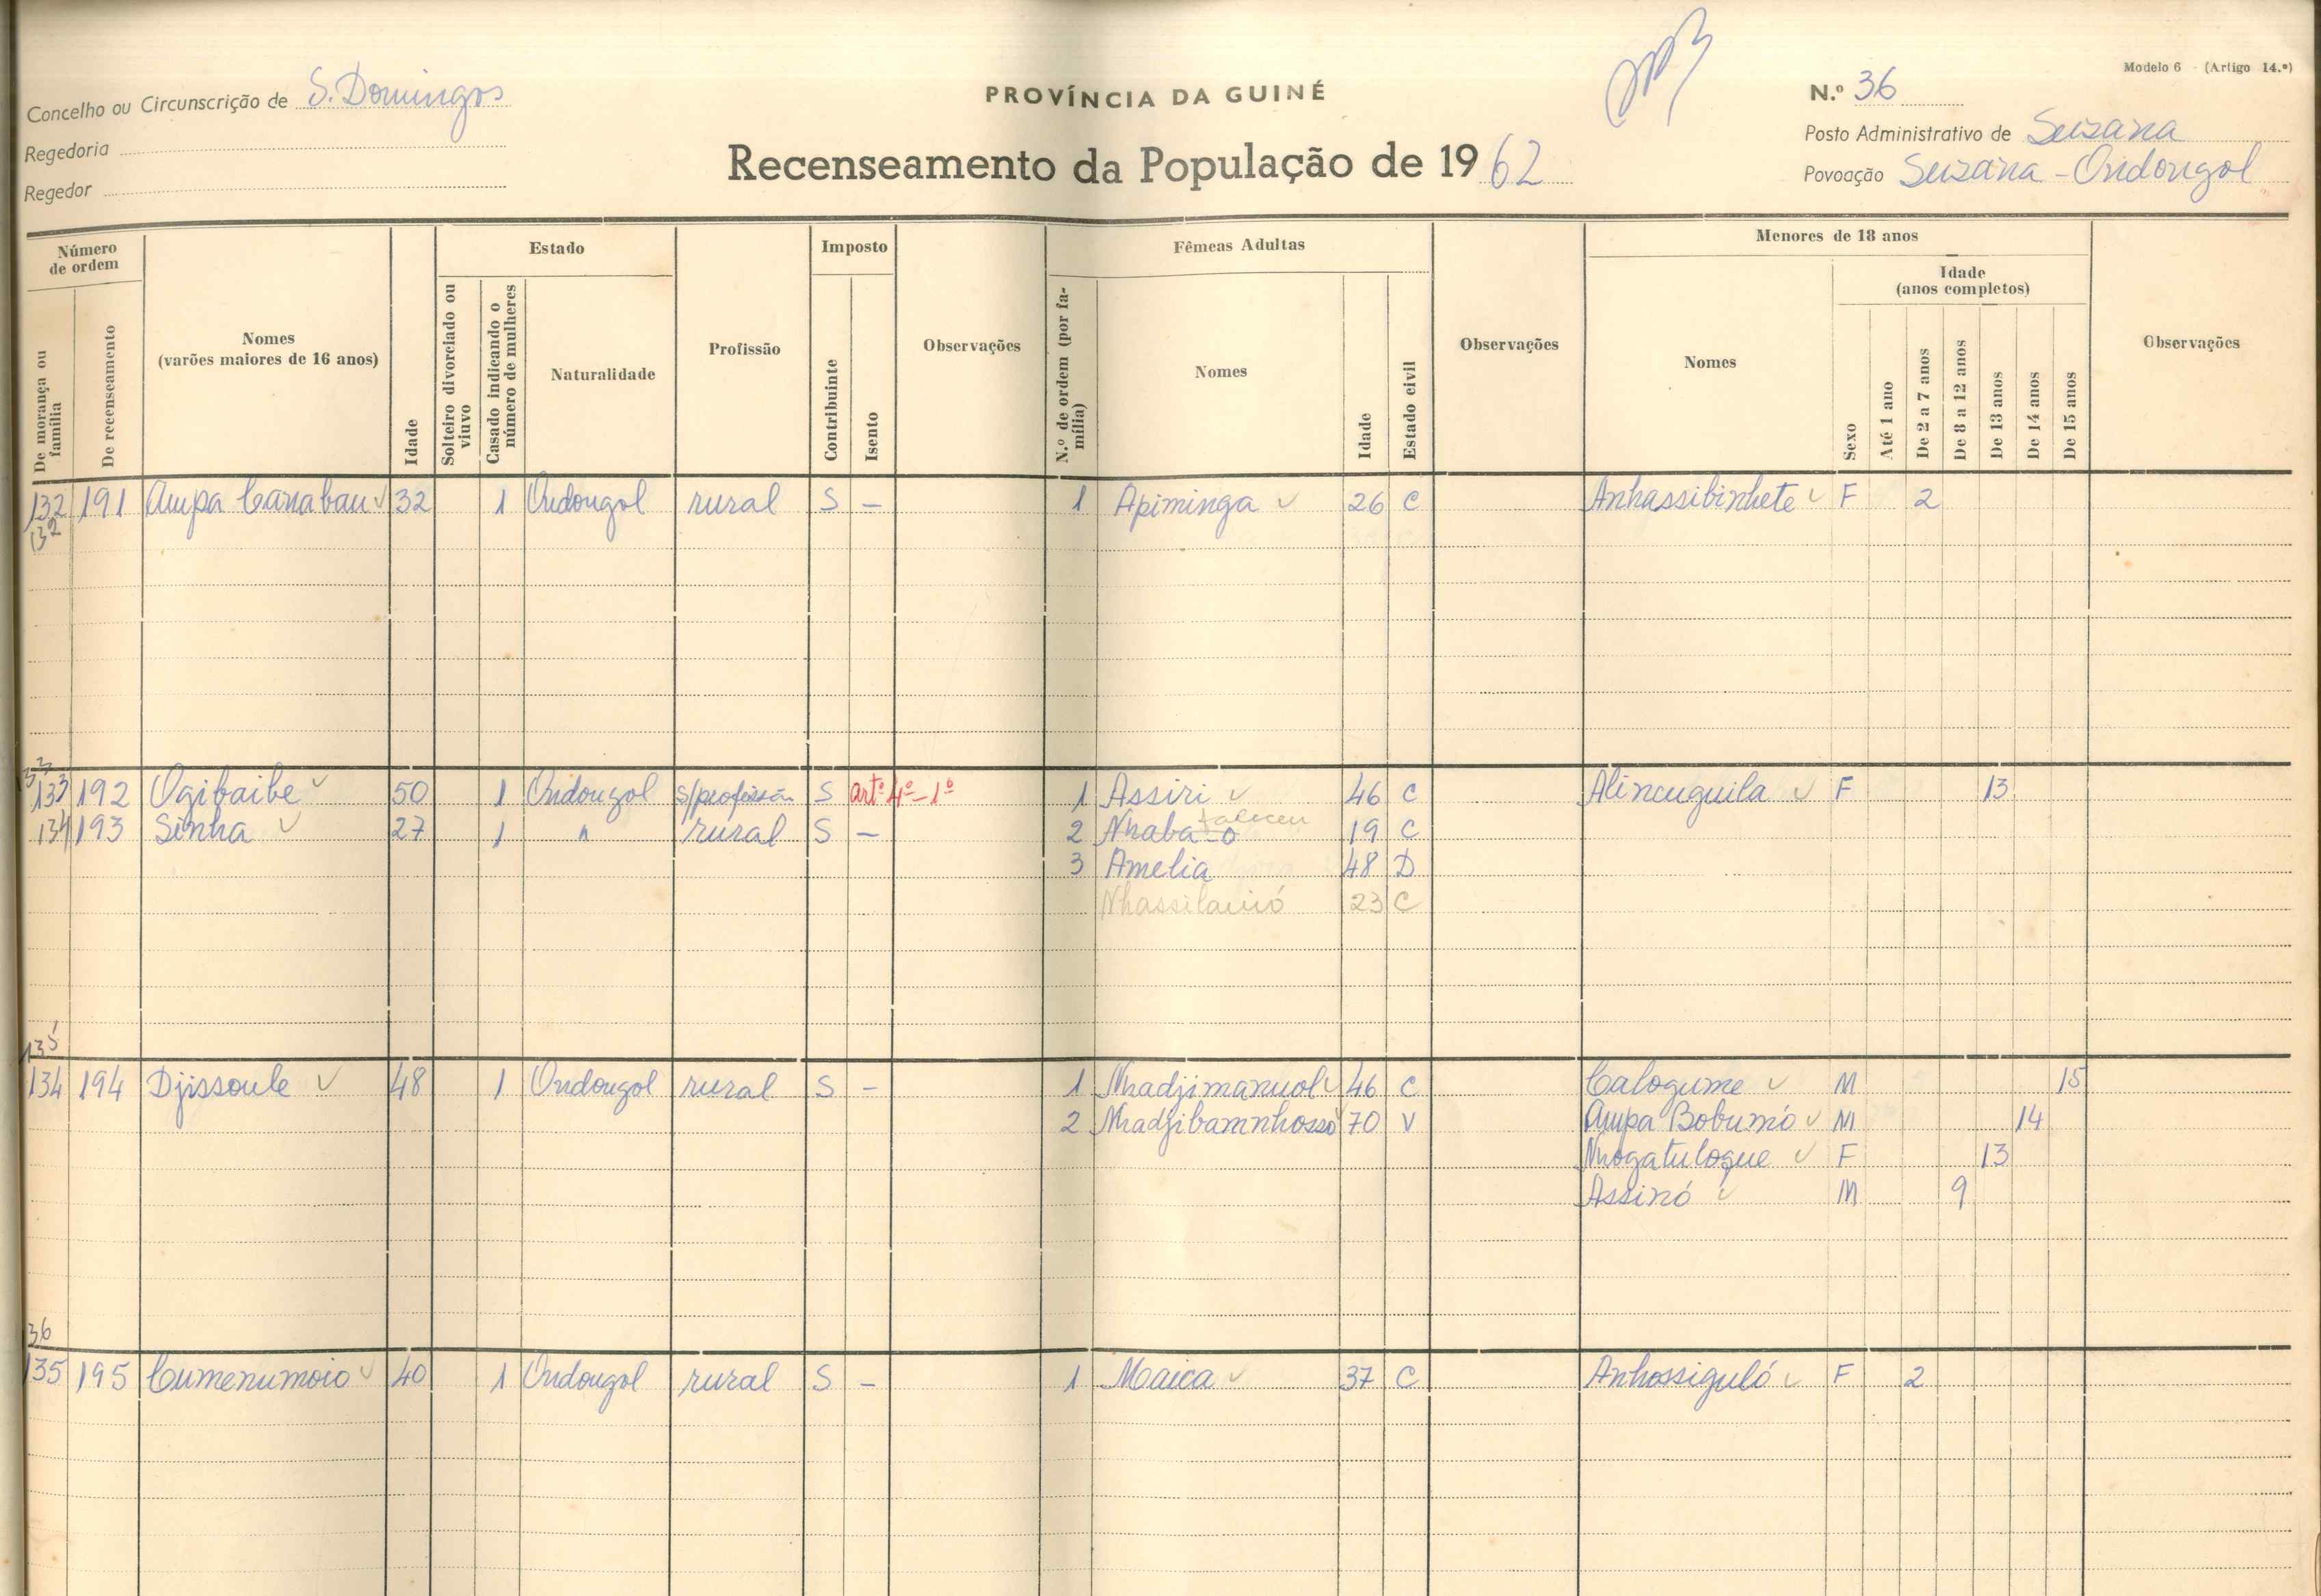 Modelo 6 (Artigo 14.º)
Concelho ou Circunscrição de S. Domingos
PROVÍNCIA DA GUINÉ
N.º 36
Regedoria
Posto Administrativo de Suzana
Regedor
Recenseamento da População de 1962
Povoação Suzana - Ondongol
Número de ordem
De morança ou família
De recenseamento
Nomes (varões maiores de 16 anos)
Idade
Estado
Solteiro divorciado ou viuvo
Casado indicando o número de mulheres
Naturalidade
Profissão
Imposto
Contribuinte
Isento
Observações
N.º de ordem (por família)
Fêmeas Adultas
Nomes
Idade
Estado civil
Observações
Menores de 18 anos
Nomes
Sexo
Idade (anos completos)
Até 1 ano
De 2 a 7 anos
De 8 a 12 anos
De 13 anos
De 14 anos
De 15 anos
Observações
132 191 Ampa Canaban 32 1 Ondongol rural S - 1 Apiminga 26 C Anhassibinhete F 2
132
133 192 Ogibaibe 50 1 Ondongol s/profissão S artº 4º-1º 1 Assiri 46 C Alincuguila F 13
faleceu
134 193 Sinha 27 1 " rural S - 2 Nhaba-o 19 C
3 Amelia 48 D
Nhassilainó 23 C
135
134 194 Djissoule 48 1 Ondongol rural S - 1 Nhadjimanuol 46 C Calogume M 15
2 Nhadjibamnhosso 70 V Ampa Bobumó M 14
Nhogatuloque F 13
Assinó M 9
36
135 195 Cumenumoio 40 1 Ondongol rural S - 1 Maica 37 C Anhossiguló F 2